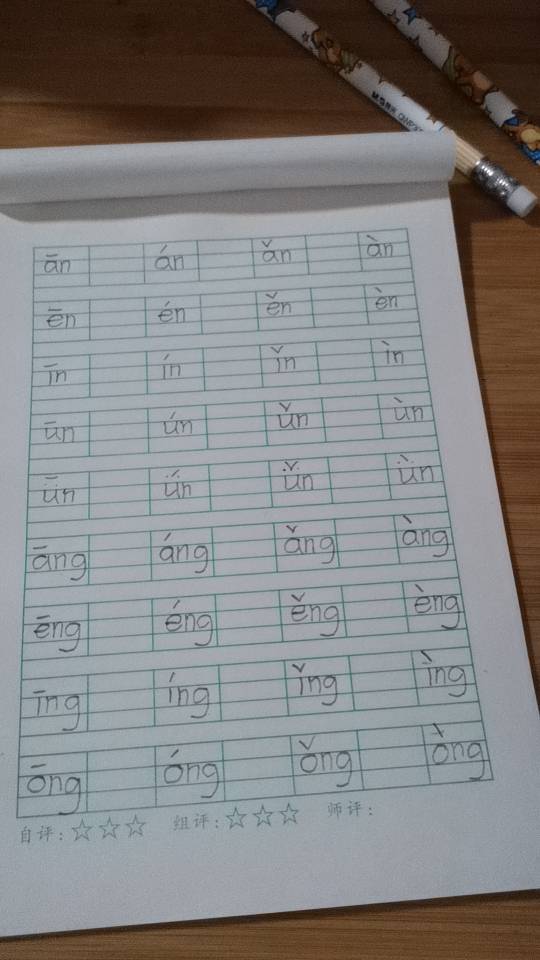 ān án ǎn àn
ēn én ěn èn
īn ín ǐn ìn
ūn ún ǔn ùn
ǖn ǘn ǚn ǜn
āng áng ǎng àng
ēng éng ěng èng
īng íng ǐng ìng
ōng óng ǒng òng
自评：☆☆☆ 组评：☆☆☆ 师评：